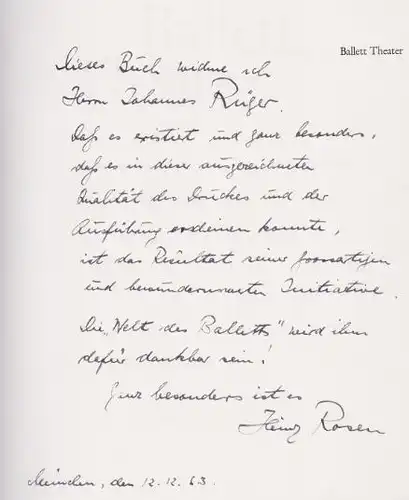 Ballett Theater
Dieses Buch widme ich
Herrn Johannes Rüger.
Daß es existiert und ganz besonders,
daß es in dieser ausgezeichneten
Qualität des Druckes und der
Ausführung erscheinen konnte,
ist das Resultat seiner grossartigen
und bewundernswerten Initiative.
Die „Welt des Balletts" wird ihm
dafür dankbar sein!
Ganz besonders ist es
Heinz Rosen
München, den 12.12.63.